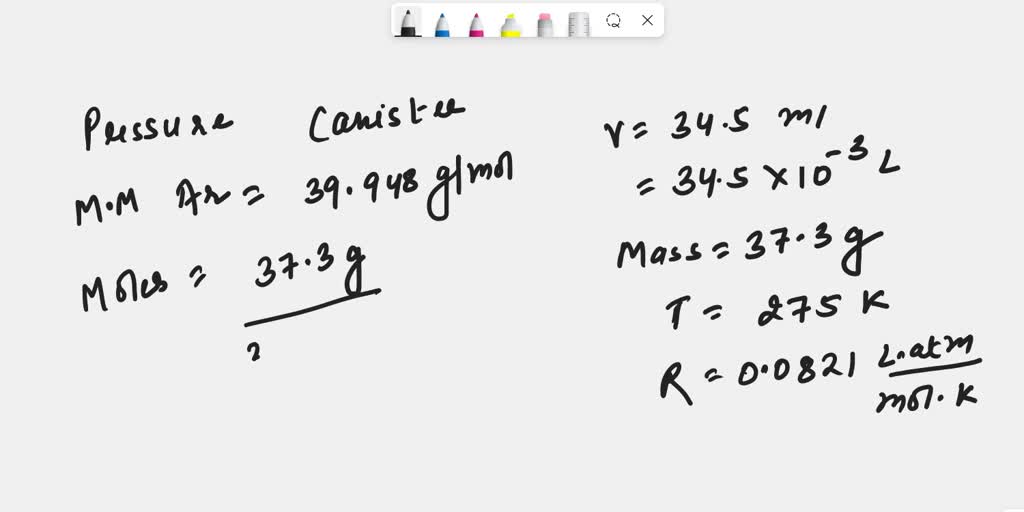 Pressure Canister
M.M Ar = 39.948 g/mol
Moles = 37.3 g
3
V = 34.5 ml
= 34.5 × 10⁻³ L
Mass = 37.3 g
T = 275 K
R = 0.0821 L.atm
mol. K